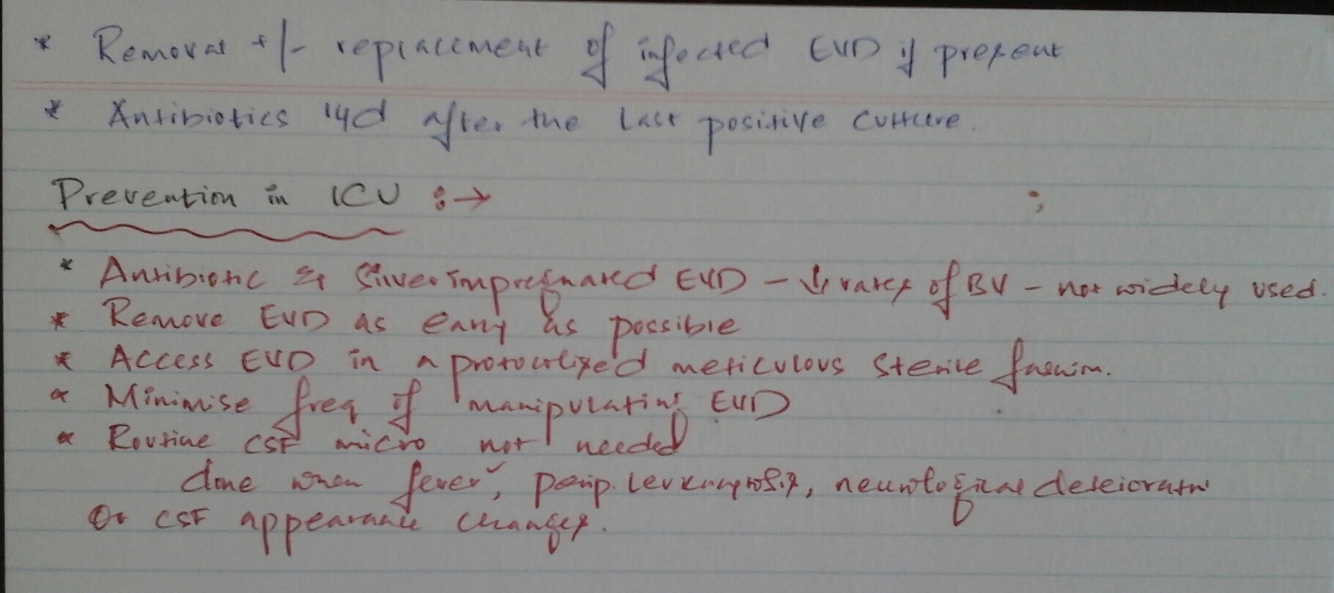 * Removal +/- replacement of infected EVD if present
* Antibiotics 14d after the last positive culture.
Prevention in ICU :→
* Antibiotic & Silver impregnated EVD - ↓ rates of BV - not widely used.
* Remove EVD as early as possible
* Access EVD in a protocolized meticulous sterile fashion.
* Minimise freq of manipulating EVD
* Routine CSF micro not needed
done when fever, perip. leukocytosis, neurological deterioratn
Or CSF appearance changes.